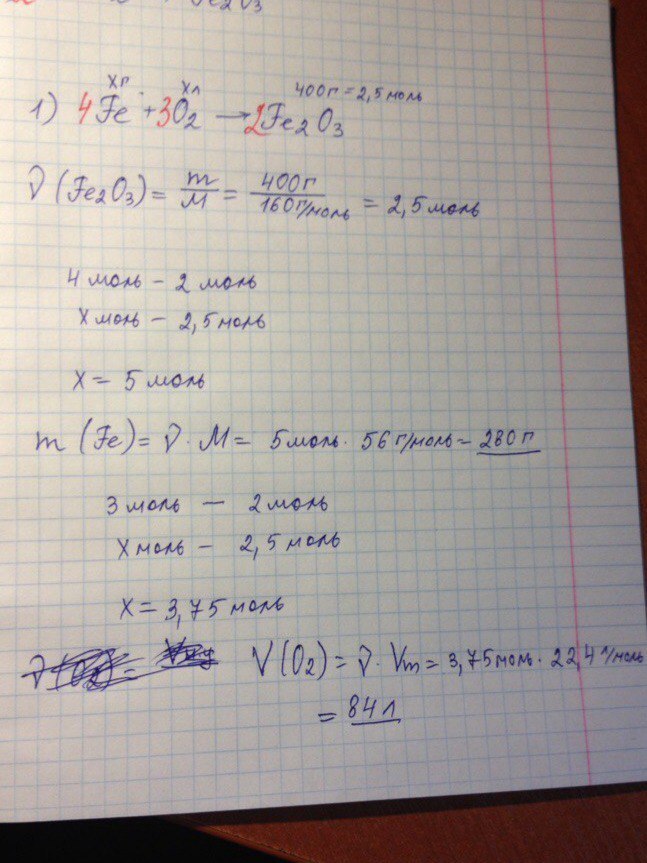 Fe2O3
xг xл 400г = 2,5 моль
1) 4Fe + 3O2 → 2Fe2O3
ν (Fe2O3) = m/M = 400г/160г/моль = 2,5 моль
4 моль – 2 моль
x моль – 2,5 моль
x = 5 моль
m (Fe) = ν · M = 5 моль · 56 г/моль = 280 г
3 моль – 2 моль
x моль – 2,5 моль
x = 3,75 моль
V (O2) = ν · Vm = 3,75 моль · 22,4 л/моль
= 84 л